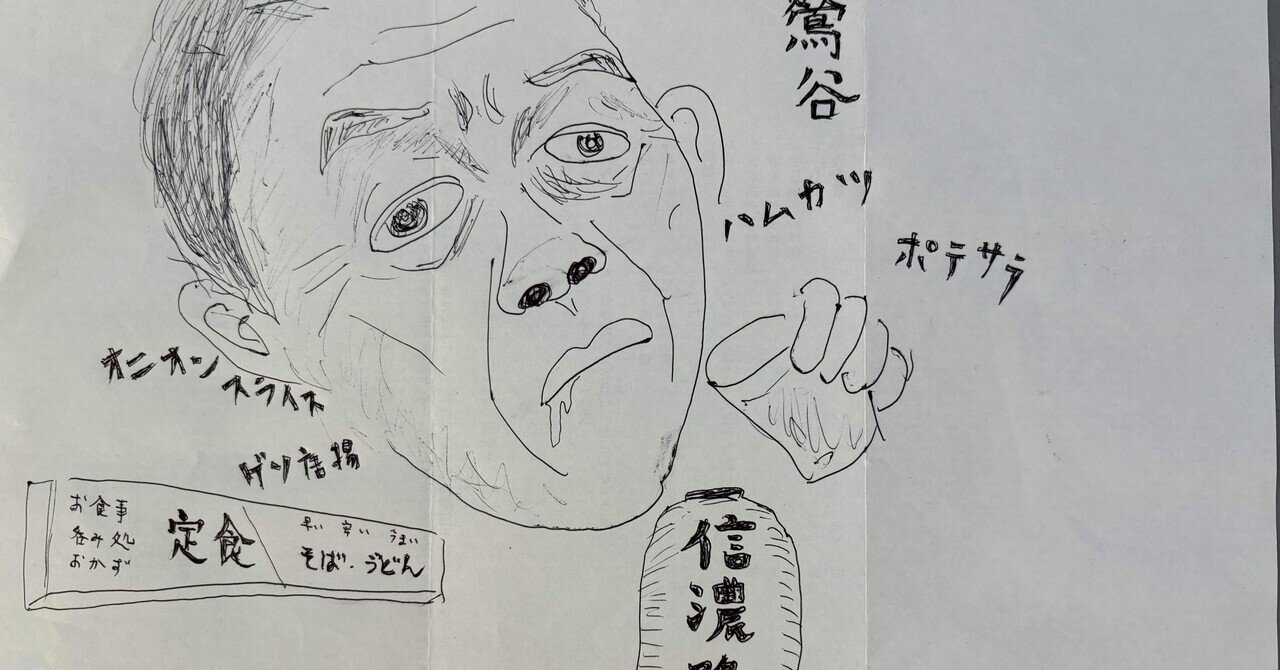 鶯谷
ハムカツ
ポテサラ
オニオン
スライス
ゲソ唐揚
お食事
呑み処
おかず
定食
早い 安い うまい
そば・うどん
信濃路